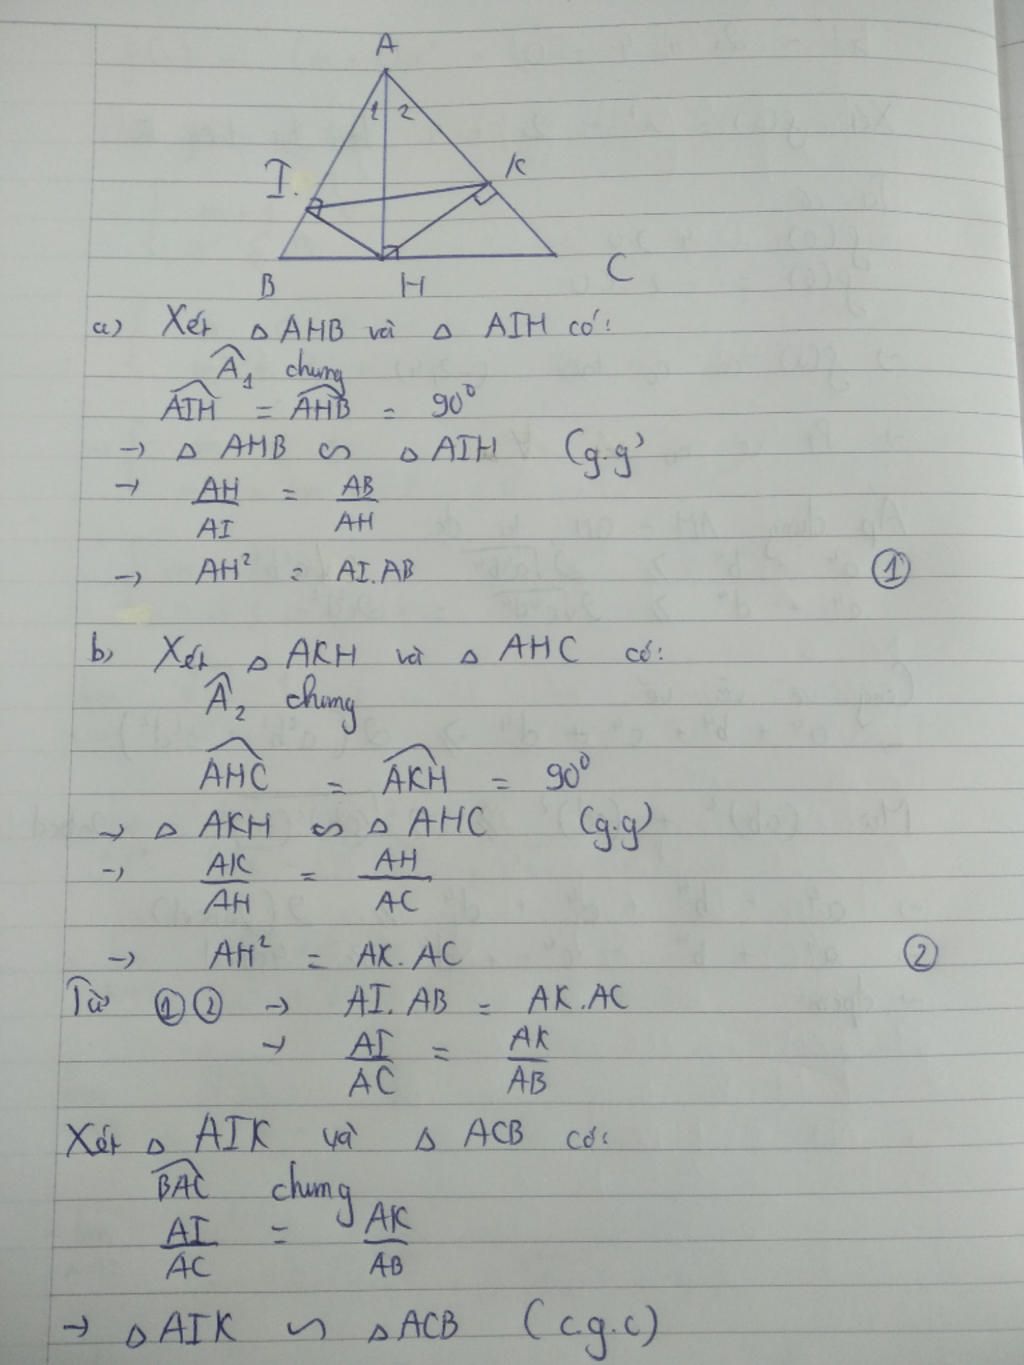 A
1 2
I.
K
B H C
a) Xét △ AHB và △ AIH có:
\widehat{A}₁ chung
\widehat{AIH} = \widehat{AHB} = 90⁰
→ △ AHB ∽ △ AIH (g.g)
→ AH/AI = AB/AH
→ AH² = AI.AB ①
b) Xét △ AKH và △ AHC có:
\widehat{A}₂ chung
\widehat{AHC} = \widehat{AKH} = 90⁰
→ △ AKH ∽ △ AHC (g.g)
→ AK/AH = AH/AC
→ AH² = AK.AC ②
Từ ① ② → AI.AB = AK.AC
→ AI/AC = AK/AB
Xét △ AIK và △ ACB có:
\widehat{BAC} chung
AI/AC = AK/AB
→ △ AIK ∽ △ ACB (c.g.c)